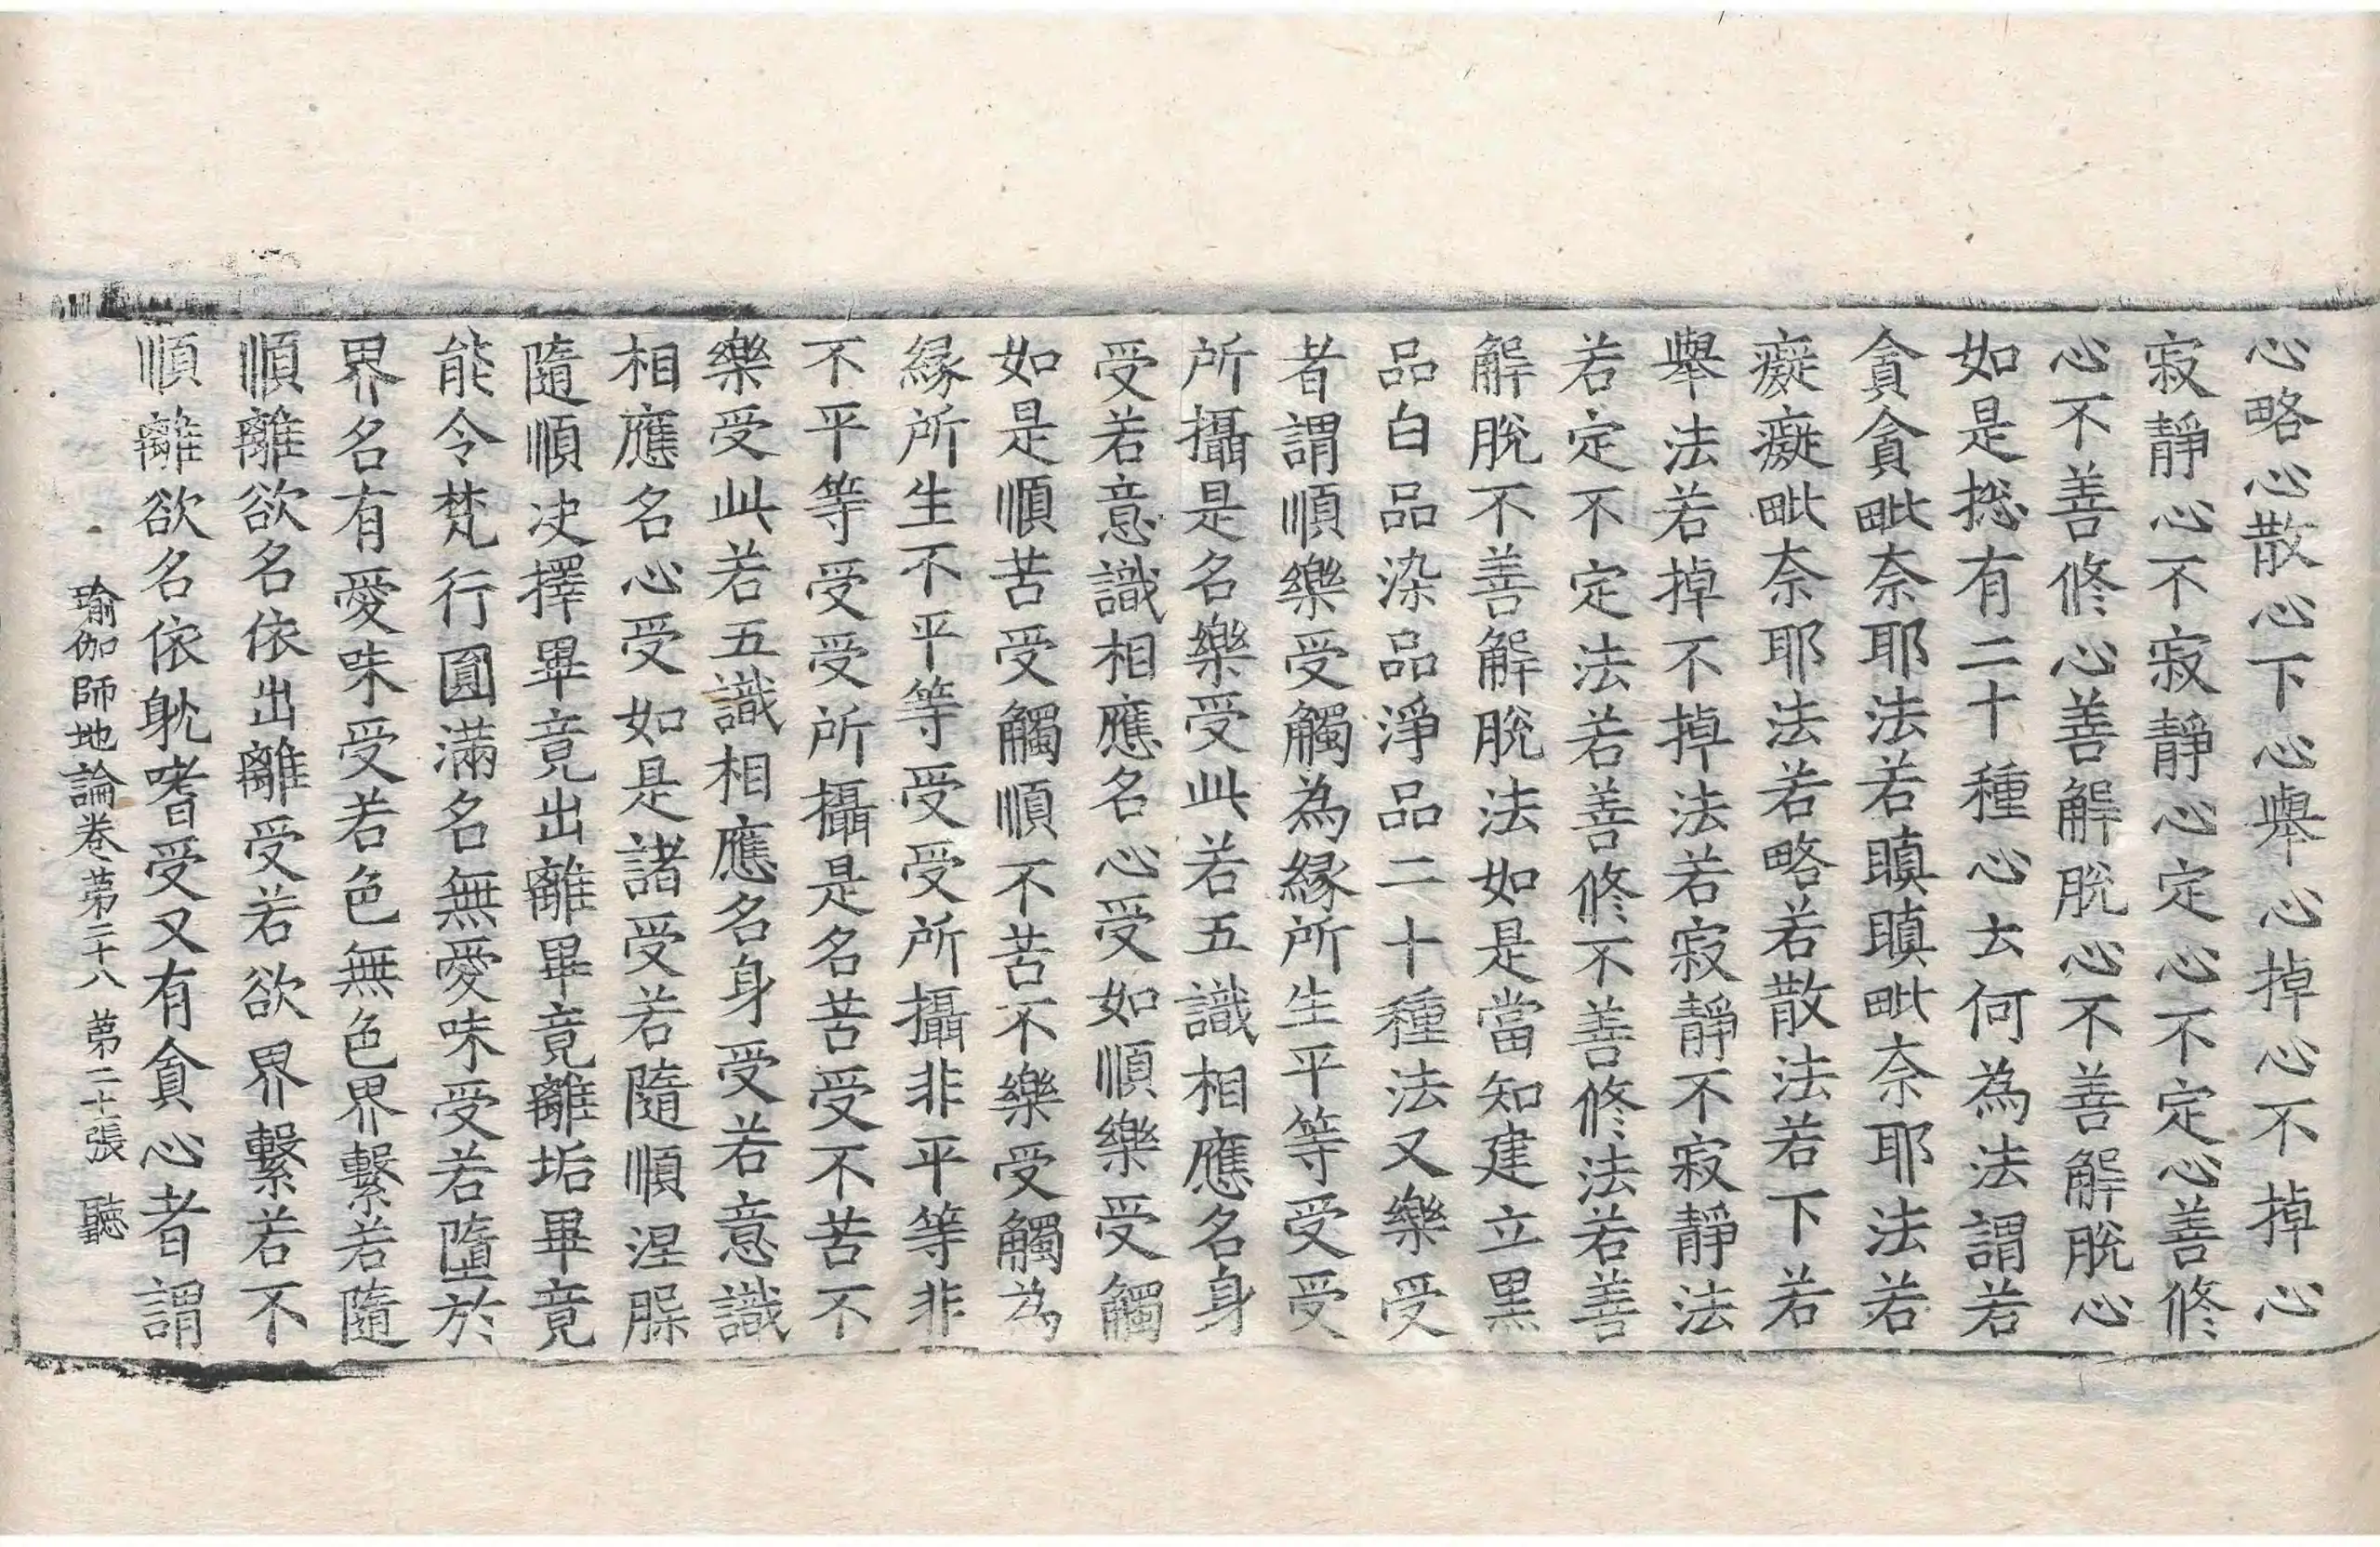 心略心散心下心舉心掉心不掉心
寂靜心不寂靜心定心不定心善修
心不善修心善解脫心不善解脫心
如是摠有二十種心去何為法謂若
貪貪毗奈耶法若瞋瞋毗奈耶法若
癡癡毗奈耶法若略若散法若下若
舉法若掉不掉法若寂靜不寂靜法
若定不定法若善修不善修法若善
解脫不善解脫法如是當知建立黑
品白品染品淨品二十種法又樂受
者謂順樂受觸為緣所生平等受受
所攝是名樂受此若五識相應名身
受若意識相應名心受如順樂受觸
如是順苦受觸順不苦不樂受觸為
緣所生不平等受受所攝非平等非
不平等受受所攝是名苦受不苦不
樂受此若五識相應名身受若意識
相應名心受如是諸受若隨順涅槃
隨順决擇畢竟出離畢竟離垢畢竟
能令梵行圓滿名無愛味受若墮於
界名有愛味受若色無色界繫若隨
順離欲名依出離受若欲界繫若不
順離欲名依躭嗜受又有貪心者謂
瑜伽師地論卷第二十八 第二十張 聽